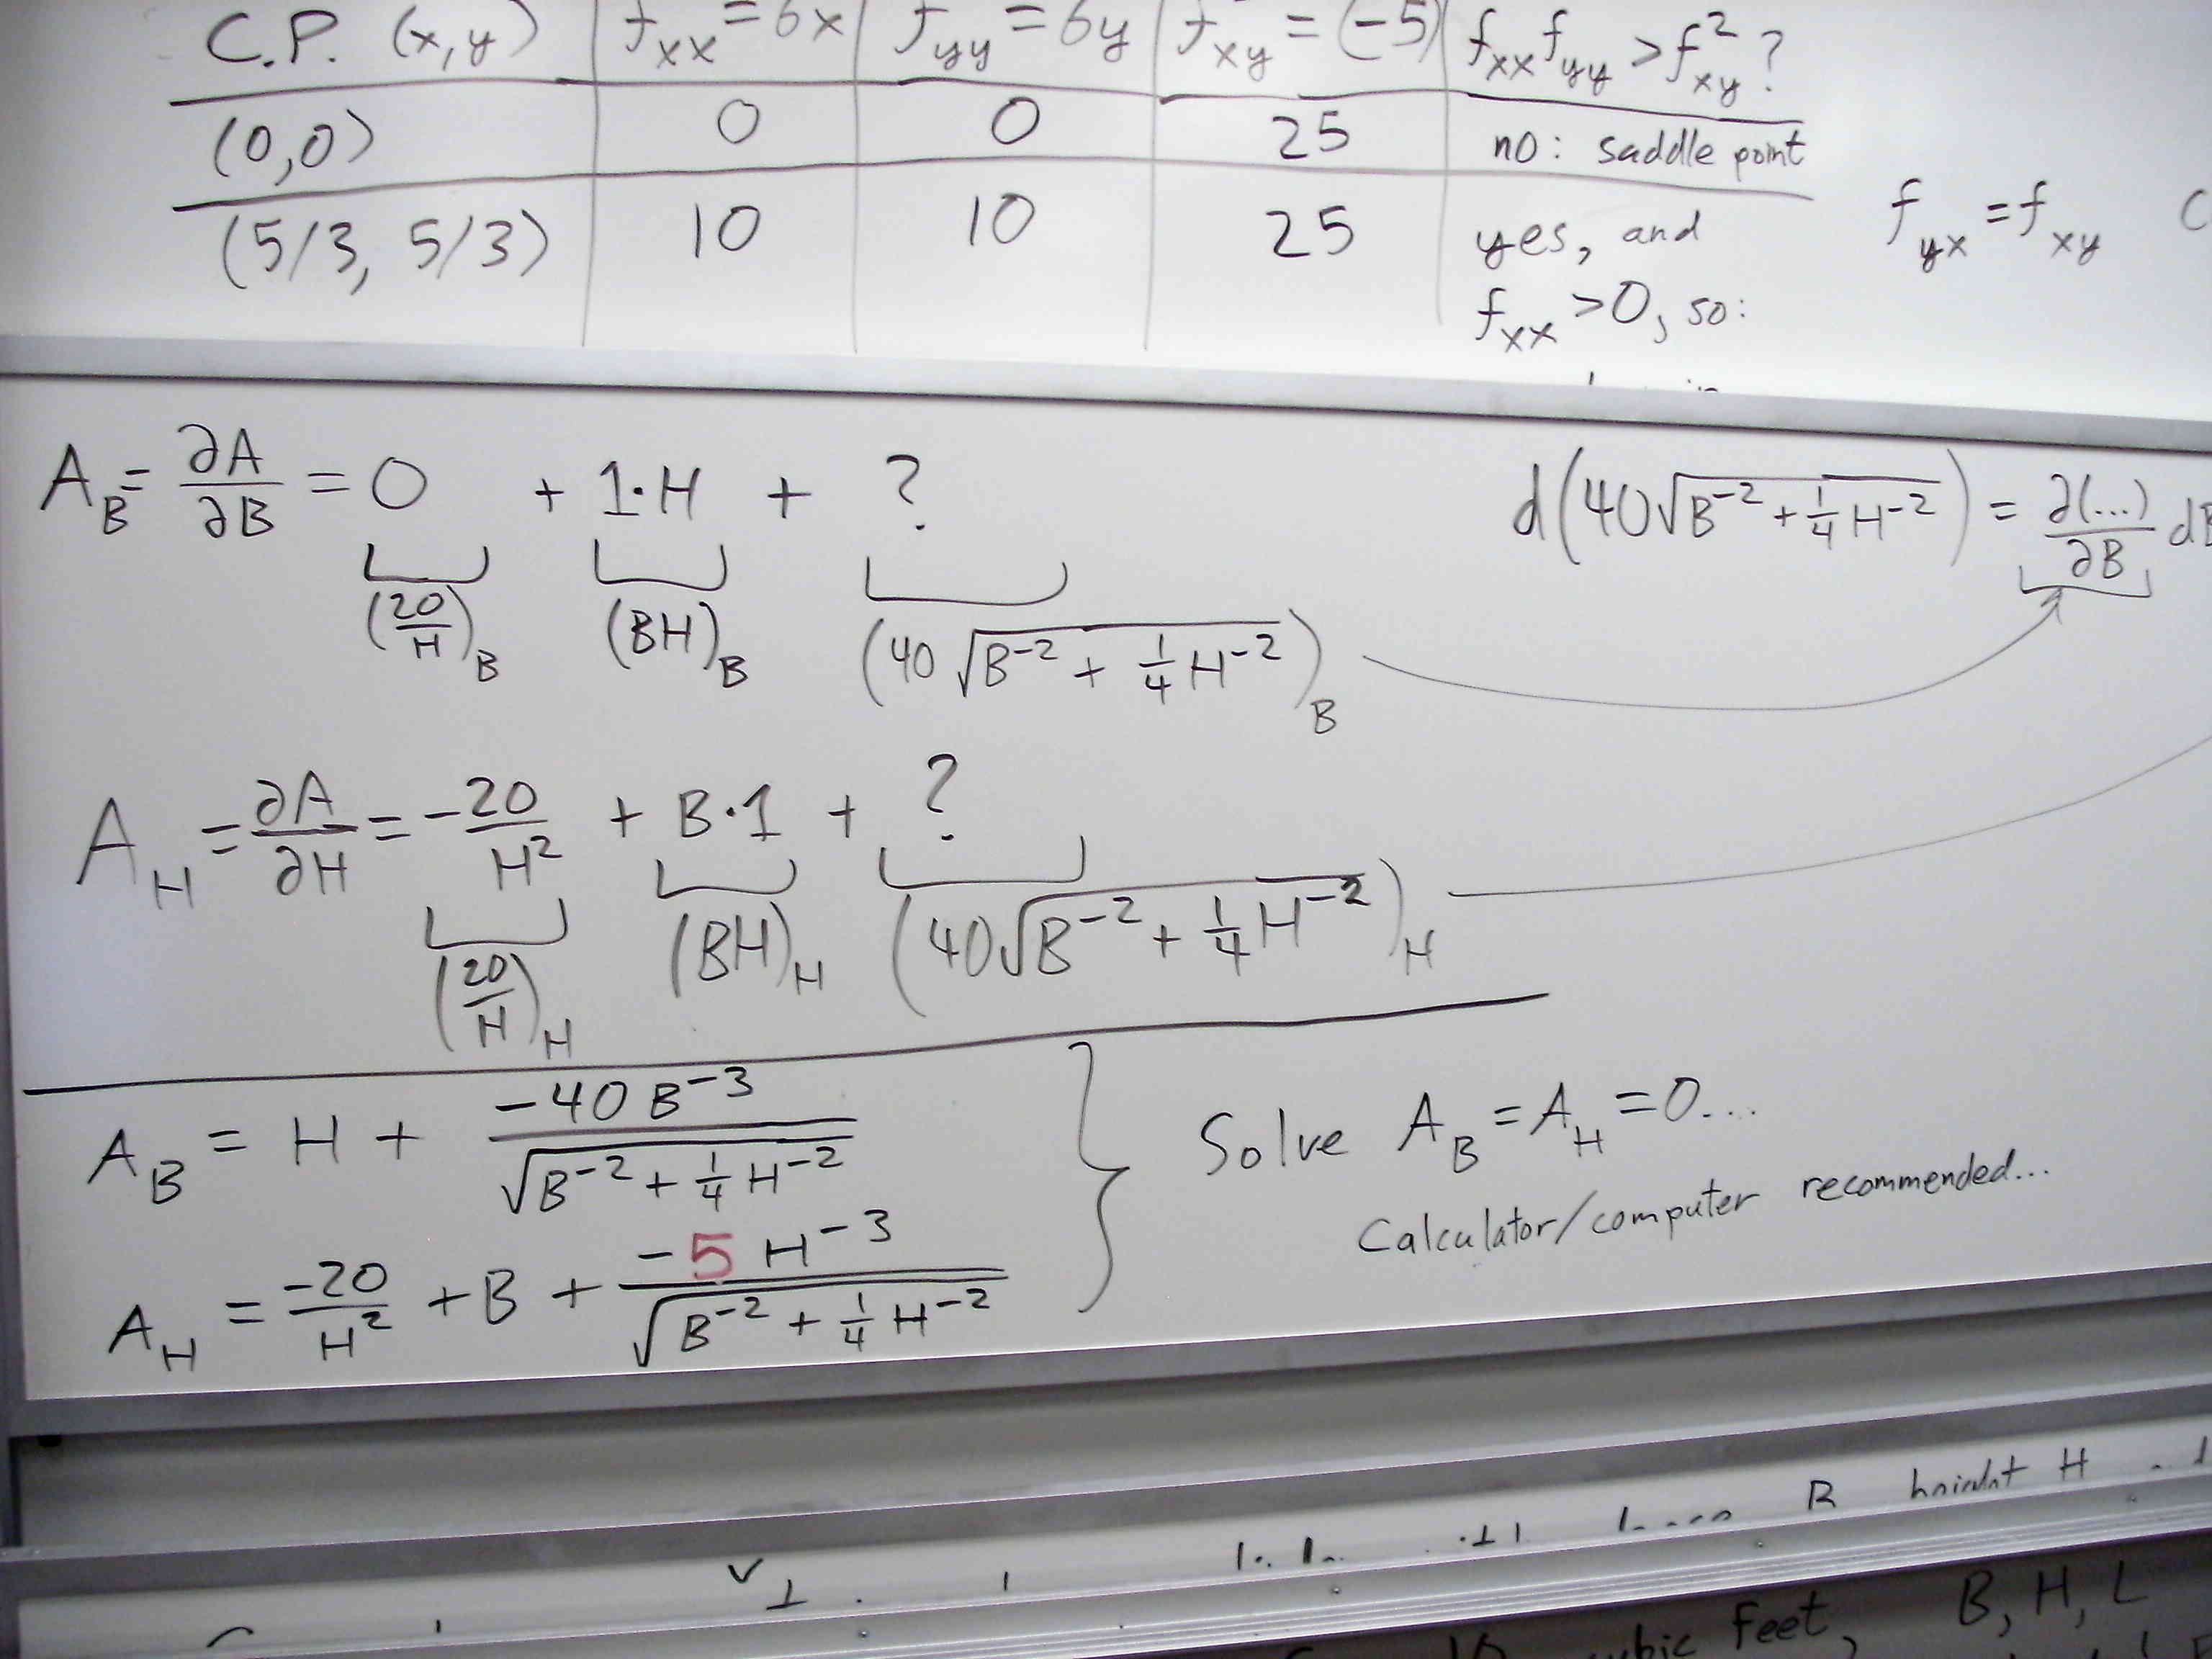 C.P. (x,y) | f_xx = 6x | f_yy = 6y | f_xy = (-5) | f_xx f_yy > f_xy^2 ?
(0,0) | 0 | 0 | 25 | no: saddle point
(5/3, 5/3) | 10 | 10 | 25 | yes, and
f_xx > 0, so:
f_yx = f_xy
A_B = ∂A/∂B = 0 + 1·H + ?
(20/H)_B (BH)_B (40√(B^-2 + 1/4 H^-2))_B
d(40√(B^-2 + 1/4 H^-2)) = ∂(...)/∂B dB
A_H = ∂A/∂H = -20/H^2 + B·1 + ?
(20/H)_H (BH)_H (40√(B^-2 + 1/4 H^-2))_H
A_B = H + -40 B^-3 / √(B^-2 + 1/4 H^-2)
A_H = -20/H^2 + B + -5 H^-3 / √(B^-2 + 1/4 H^-2)
Solve A_B = A_H = 0...
Calculator/computer recommended...
B height H
cubic feet, B, H, L